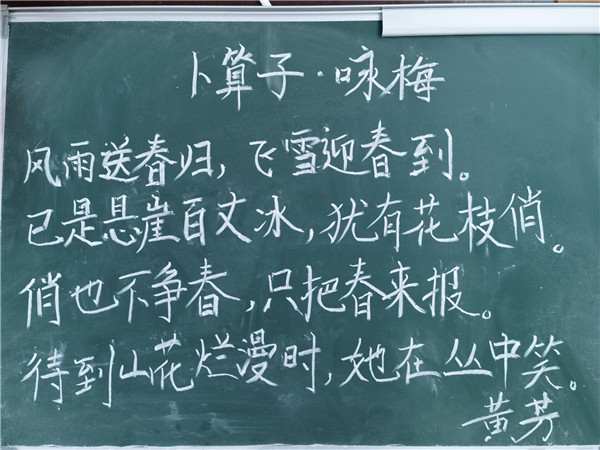 卜算子·咏梅
风雨送春归，飞雪迎春到。
已是悬崖百丈冰，犹有花枝俏。
俏也不争春，只把春来报。
待到山花烂漫时，她在丛中笑。
黄芳